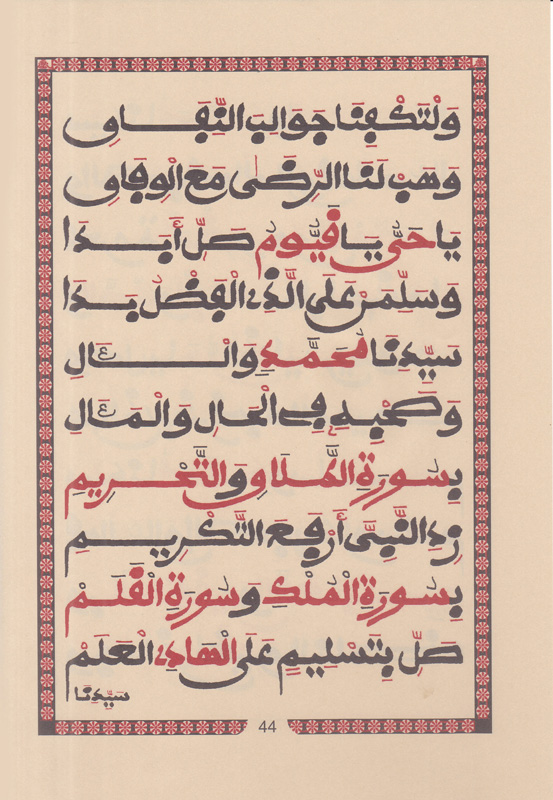 وَلْتَكْفِنَا جَوَالِبَ النِّفَاقِ
وَهَبْ لَنَا الرِّضَى مَعَ الْوِفَاقِ
يَا حَيُّ يَا قَيُّومُ صَلِّ أَبَدَا
وَسَلِّمَنْ عَلَى الَّذِي الْفَضْلُ بَدَا
سَيِّدِنَا مُحَمَّدٍ وَالْآلِ
وَصَحْبِهِ فِي الْحَالِ وَالْمَآلِ
بِسُورَةِ الطَّلَاقِ وَالتَّحْرِيمِ
زِدِ النَّبِيَّ أَرْفَعَ التَّكْرِيمِ
بِسُورَةِ الْمُلْكِ وَسُورَةِ الْقَلَمْ
صَلِّ بِتَسْلِيمٍ عَلَى الْهَادِي الْعَلَمْ
سَيِّدِنَا
44